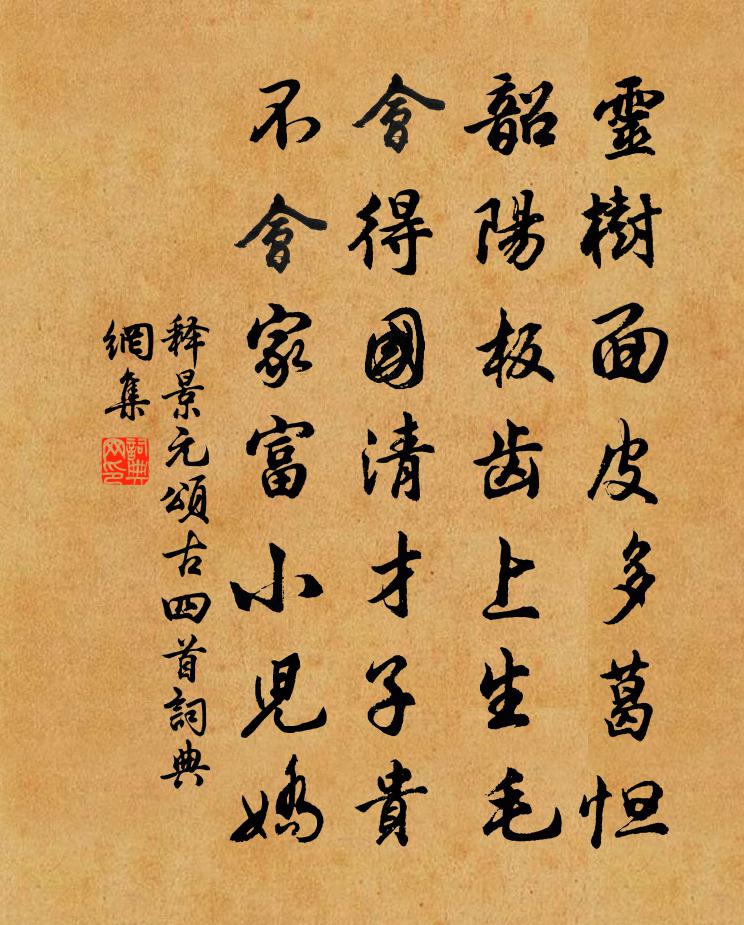 靈樹面皮多葛怛
韶陽板齿上生毛
會得國清才子貴
不會家富小児嬌
释景元頌古四首詞典
網集
詞典網印